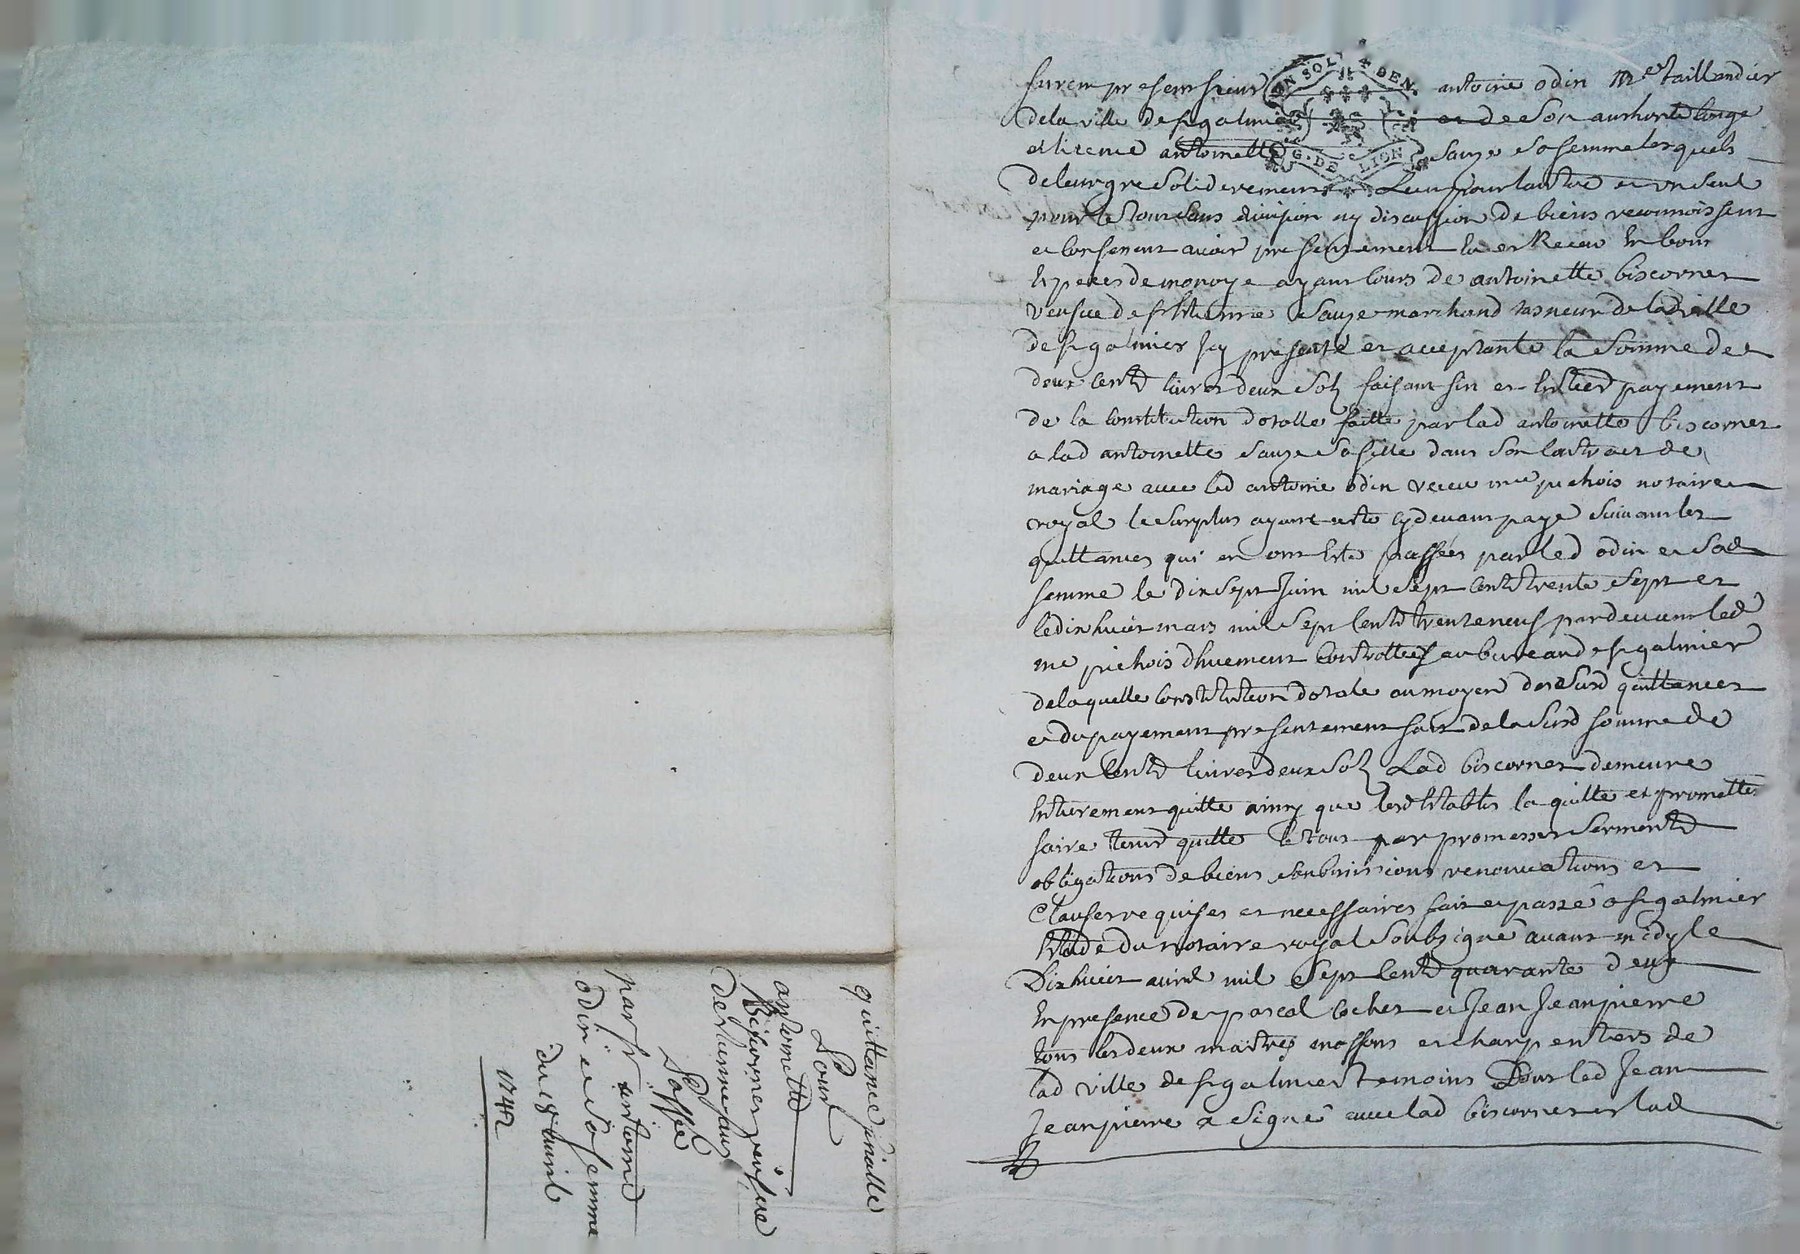 furent presents sieur antoine odin Me taillandier
de la ville de st galmier et de son authorité conge
et licence antoinette sauze sa femme lesquels
de leur gre soliderement lun pour lautre et un seul
pour le tout sans division ny discussion de biens reconnoissent
et confessent avoir presentement eu et Receu en bonnes
especes de monoye ayant cours de antoinette biscornet
veufve de st etienne sauze marchand tasneur de lad ville
de st galmier icy presente et acceptante la somme de
deux cents livres deux sols faisant fin et entier payement
de la constitution dotalle faitte par lad antoinette biscornet
a lad antoinette sauze sa fille dans son contract de
mariage avec led antoine odin receu me pichois notaire
royal le surplus ayant este cydevant paye suivant les
quittances qui en ont este passées par led odin et sad
femme le dix sept juin mil sept cents trente sept et
le dix huict mars mil sept cents trente neuf pardevant led
me pichois dhuement controllees au bureau de st galmier
de laquelle constitution dotale au moyen des susd quittances
et du payement presentement fait de la susd somme de
deux cents livres deux sols Lad biscornet demeure
entierement quitte ainsy que lesd establis la quitte et promettes
faire tenir quitte le tout par promesses serments
obligations de biens soubmissions renonciations et
clauses requises et necessaires fait et passé a st galmier
etude du notaire royal soubsigné avant midy le
Dix huict avril mil sept cents quarante deux
en presence de pascal cochet et jean jeanpierre
tous les deux maitres massons et charpentiers de
lad ville de st galmier temoins dont led jean
jeanpierre a signé avec lad biscornet et lad
quittance finalle
Pour
antoinette
Biscornet veufve
de etienne sauze
Passée
par sr antoine
odin et sa femme
du 18 avril
1742